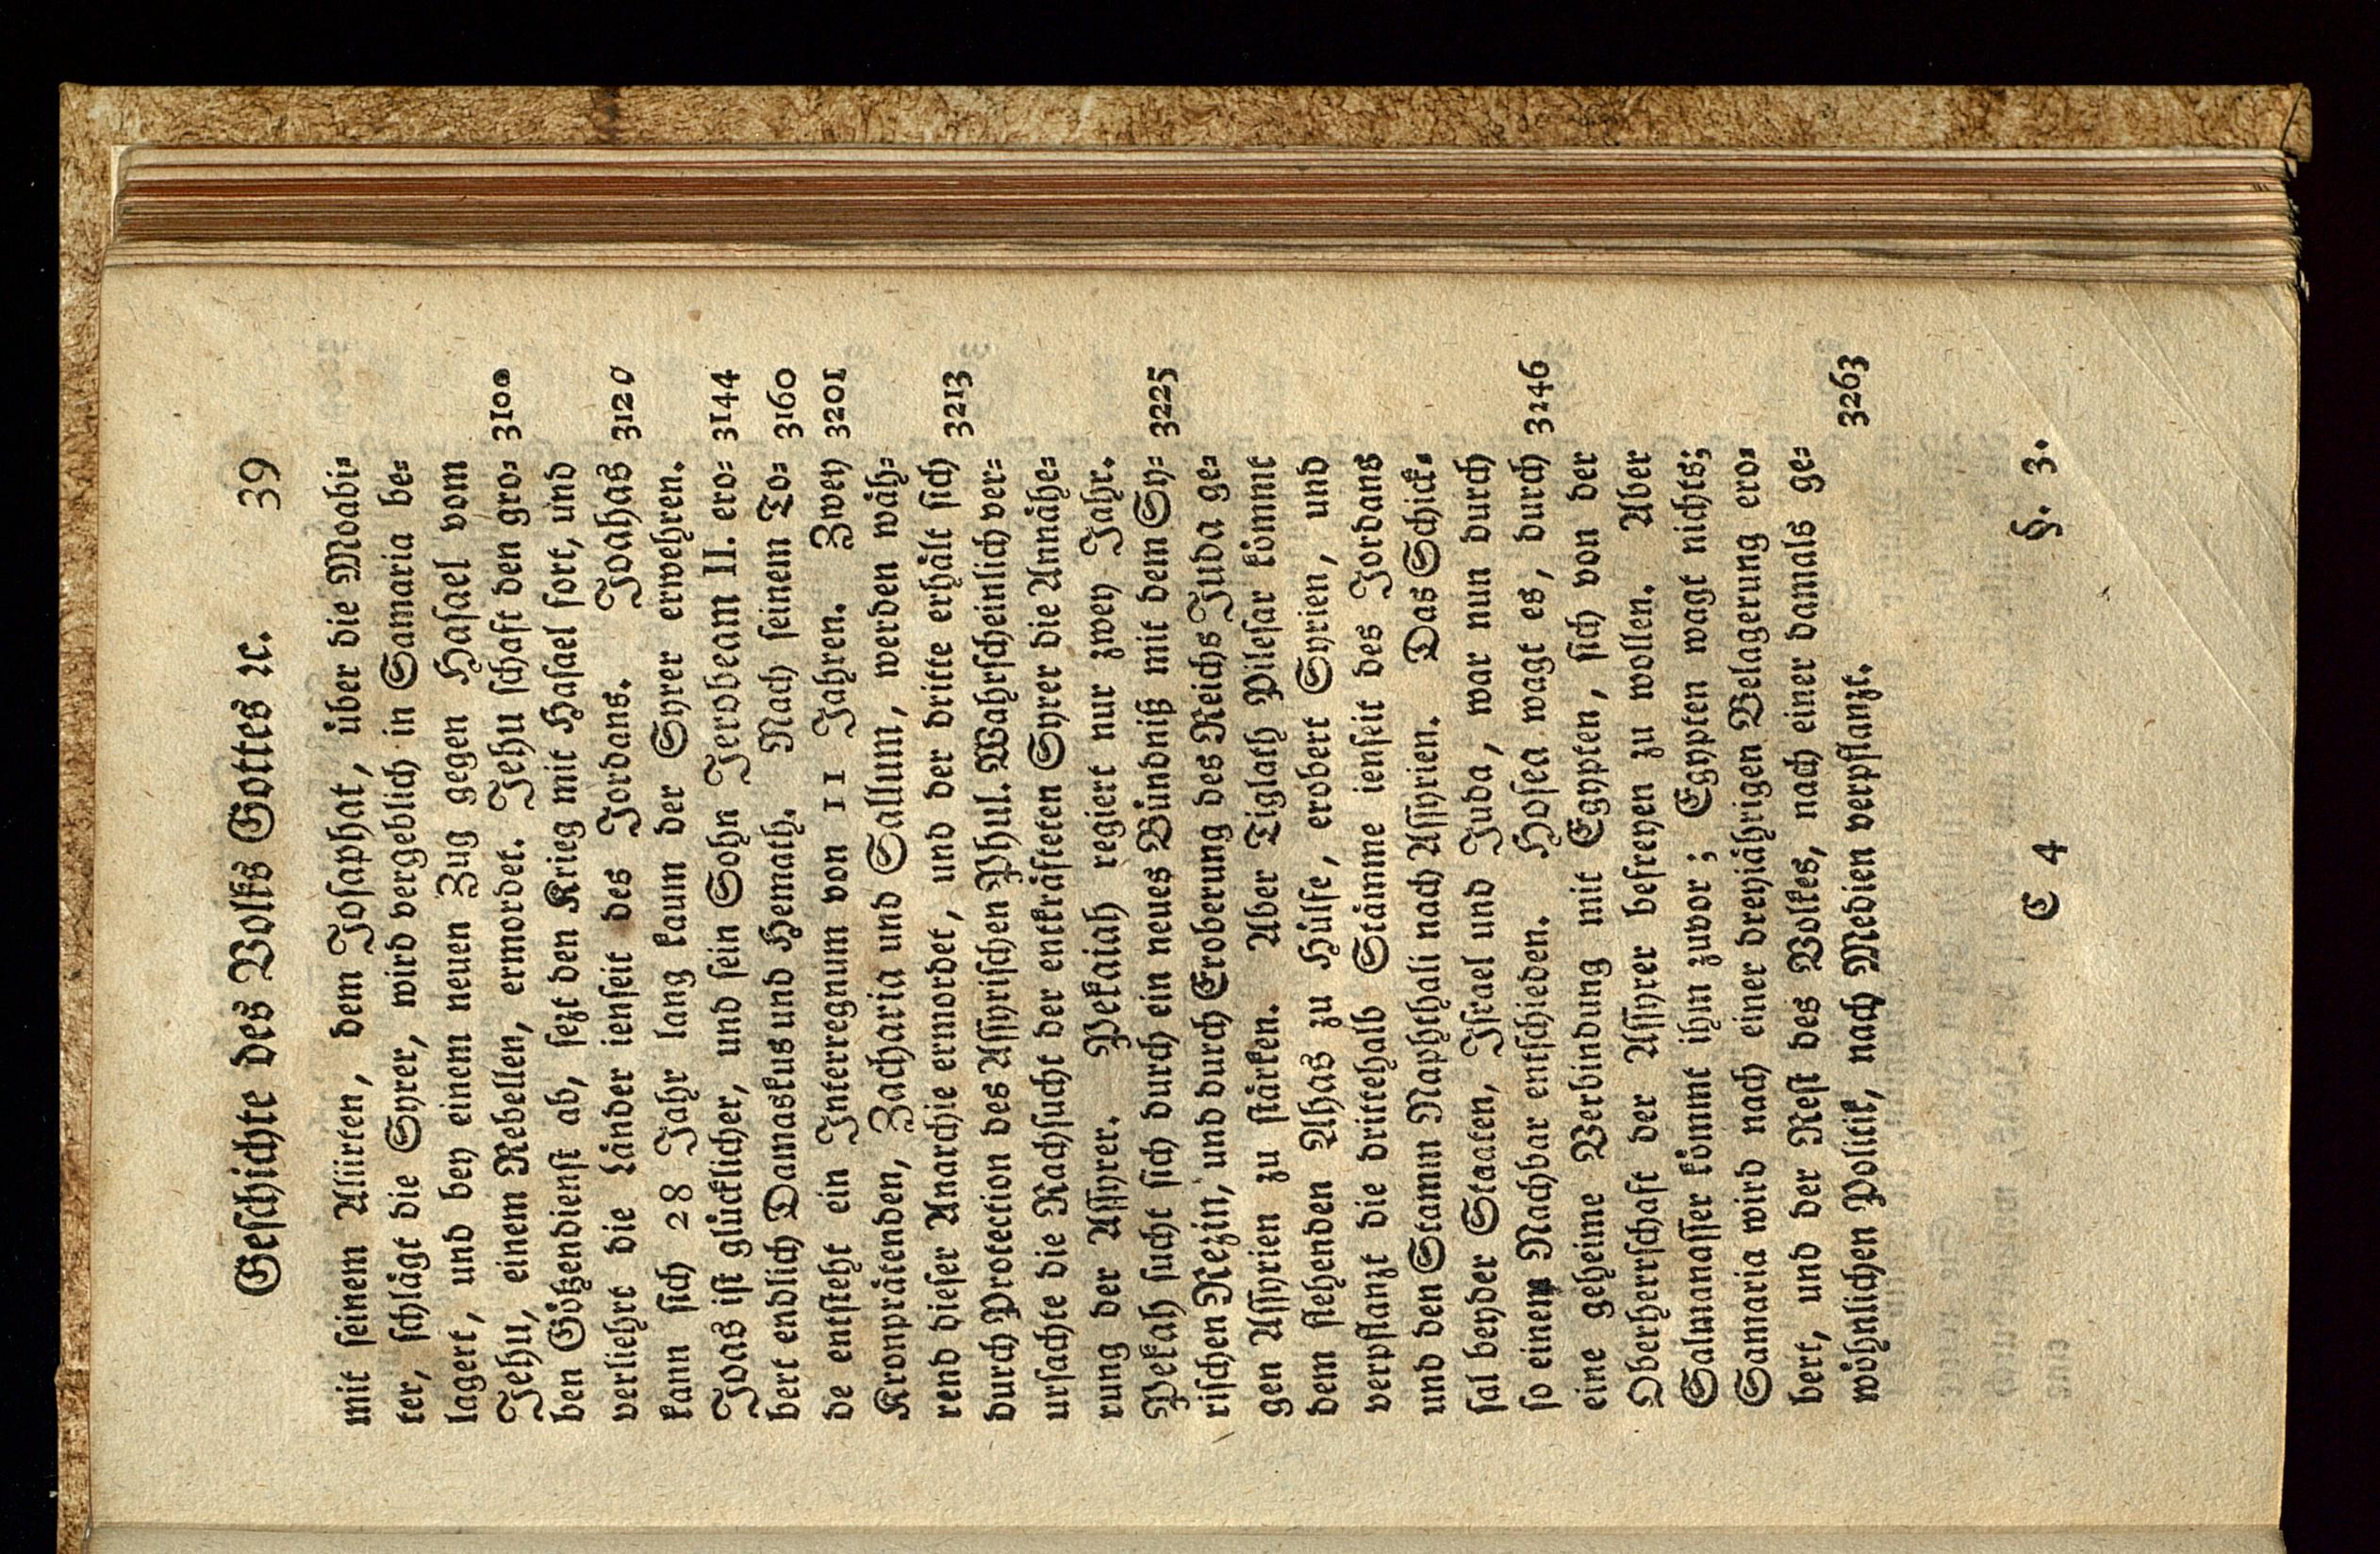 Geschichte des Volks Gottes ꝛc. 39
mit seinem Alliirten, dem Josaphat, über die Moabi⸗
ter, schlägt die Syrer, wird vergeblich in Samaria be⸗
lagert, und bey einem neuen Zug gegen Hasael vom
Jehu, einem Rebellen, ermordet. Jehu schaft den gro⸗ 3100
ben Götzendienst ab, sezt den Krieg mit Hasael fort, und
verliehrt die Länder ienseit des Jordans. Joahas 3120
kann sich 28 Jahr lang kaum der Syrer erwehren.
Joas ist glücklicher, und sein Sohn Jerobeam II. ero⸗ 3144
bert endlich Damaskus und Hemath. Nach seinem To⸗ 3160
de entsteht ein Interregnum von 11 Jahren. Zwey 3201
Kronprätenden, Zacharia und Sallum, werden wäh⸗
rend dieser Anarchie ermordet, und der dritte erhält sich 3213
durch Protection des Assyrischen Phul. Wahrscheinlich ver⸗
ursachte die Rachsucht der entkräfteten Syrer die Annähe⸗
rung der Assyrer. Pekaiah regiert nur zwey Jahr.
Pekah sucht sich durch ein neues Bündniß mit dem Sy⸗ 3225
rischen Rezin, und durch Eroberung des Reichs Juda ge⸗
gen Assyrien zu stärken. Aber Tiglath Pilesar kömmt
dem flehenden Ahas zu Hülfe, erobert Syrien, und
verpflanzt die drittehalb Stämme ienseit des Jordans
und den Stamm Naphthali nach Assyrien. Das Schick⸗
sal beyder Staaten, Israel und Juda, war nun durch
so einem Nachbar entschieden. Hosea wagt es, durch 3246
eine geheime Verbindung mit Egypten, sich von der
Oberherrschaft der Assyrer befreyen zu wollen. Aber
Salmanasser kömmt ihm zuvor; Egypten wagt nichts;
Samaria wird nach einer dreyiährigen Belagerung ero⸗
bert, und der Rest des Volkes, nach einer damals ge⸗
wöhnlichen Politik, nach Medien verpflanzt. 3263
C 4 §. 3.